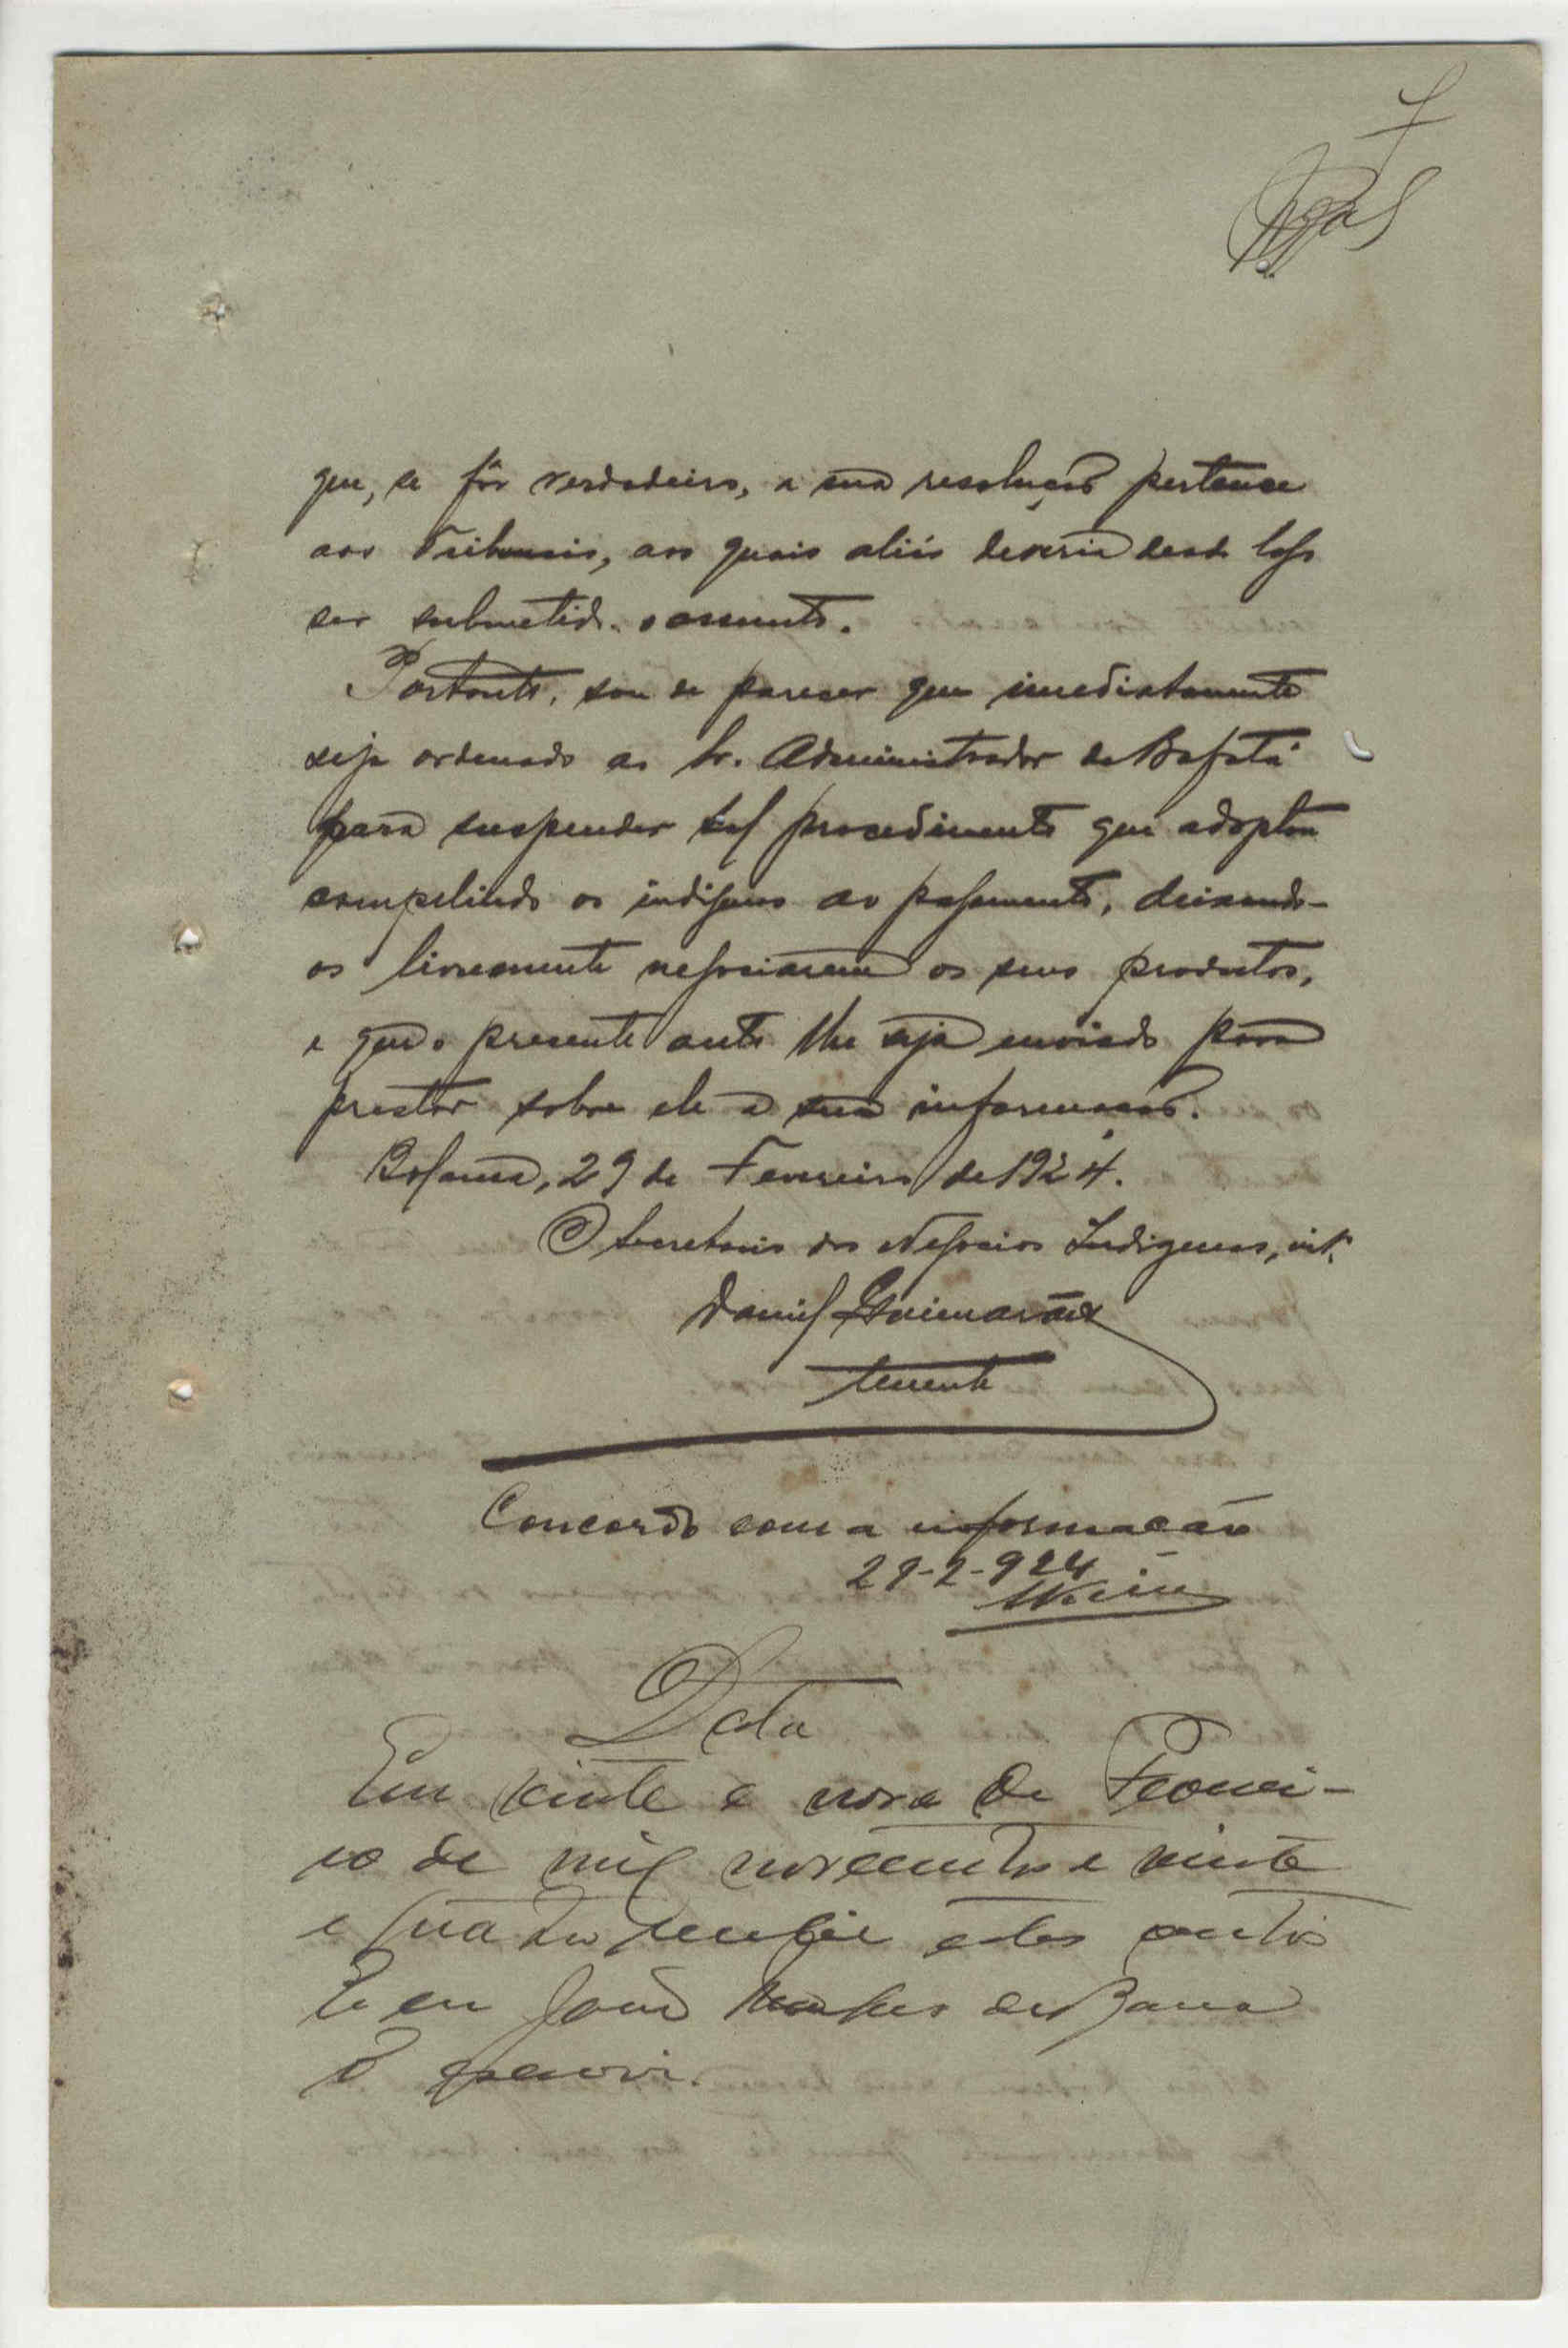 que, se fôr verdadeiro, a sua resolução pertence
aos Tribunais, aos quais aliás deveria desde logo
ser submetido o assunto.
Portanto, sou de parecer que imediatamente
seja ordenado ao Sr. Administrador de Bafatá
para suspender tal procedimento que adoptou
compelindo os indigenas ao pagamento, deixando-
os livremente negociarem os seus productos,
e que o presente auto lhe seja enviado para
prestar sobre ele a sua informação.
Bolama, 29 de Fevereiro de 1924.
O Secretario dos Negocios Indigenas, intº.
Daniel Guimarães
tenente
Concordo com a informação
29-2-924
Data
Em vinte e nove de Feverei-
ro de mil novecentos e vinte
e quatro recebi estes autos
E eu João de Barra
o escrevi.